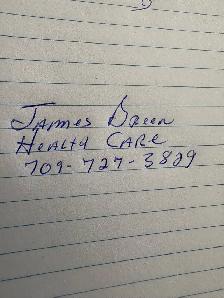 James Breen
Health Care
709-727-3829